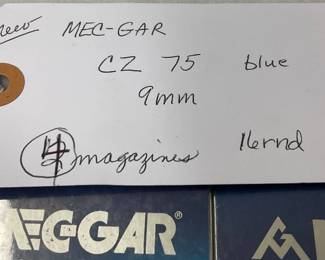 new MEC-GAR
CZ 75 blue
9mm
4 magazines 16rnd
MEC-GAR®